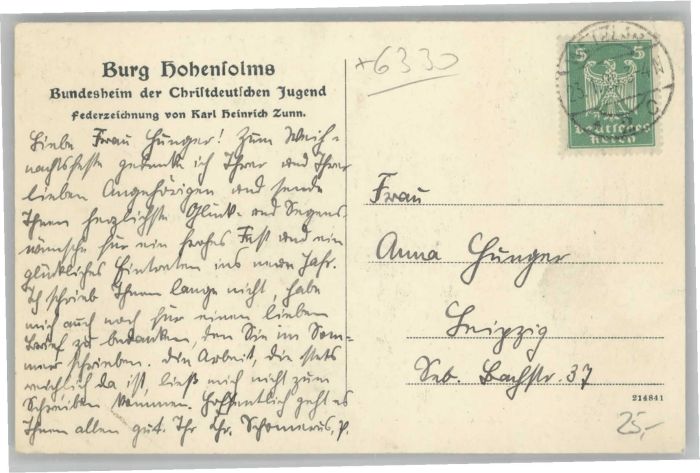 Burg Hohensolms
Bundesheim der Christdeutschen Jugend
Federzeichnung von Karl Heinrich Zunn.
Liebe Frau Hunger! Zum Weih-
nachtsfeste gedenke ich Ihrer und Ihrer
lieben Angehörigen und sende
Ihnen herzlichste Glück- und Segens-
wünsche für ein frohes Fest und ein
glückliches Eintreten ins neue Jahr.
Ich schrieb Ihnen lange nicht, habe
mich auch noch für einen lieben
Brief zu bedanken, den Sie im Som-
mer schrieben. Die Arbeit, die stets
reichlich da ist, ließ mich nicht zum
Schreiben kommen. Hoffentlich geht es
Ihnen allen gut. Ihr Chr. Schomerus, P.
*6330
5 5
Deutsches
Reich
Frau
Anna Hunger
Leipzig
Seb. Bachstr. 37
214841
25,-